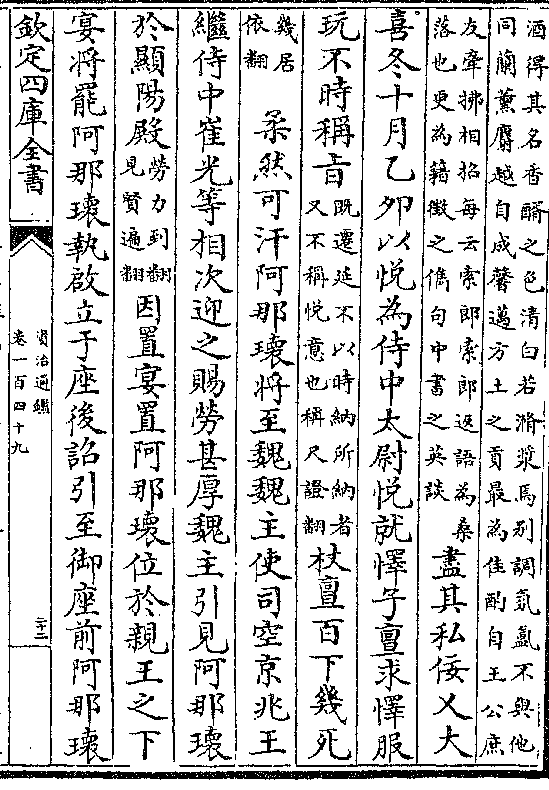 酒得其名香醑之色清白若滫漿焉别調氛氲不與他
同蘭薰麝越自成馨邁方土之貢最為佳酌自王公庶
友牽拂相招每云索郎索郎返語為桑
落也更為籍徵之儁句中書之英談
盡其私佞乂大
喜冬十月乙卯以悦為侍中太尉悦就懌子亶求懌服
玩不時稱旨
既遷延不以時納所納者
又不稱悦意也稱尺證翻
杖亶百下幾死
幾居
依翻
柔然可汗阿那瓌將至魏魏主使司空京兆王
繼侍中崔光等相次迎之賜勞甚厚魏主引見阿那瓌
於顯陽殿
勞力到翻
見賢遍翻
因置宴置阿那瓌位於親王之下
宴將罷阿那瓌執啟立于座後詔引至御座前阿那瓌
欽定四庫全書
資治通鑑
卷一百四十九
二十二